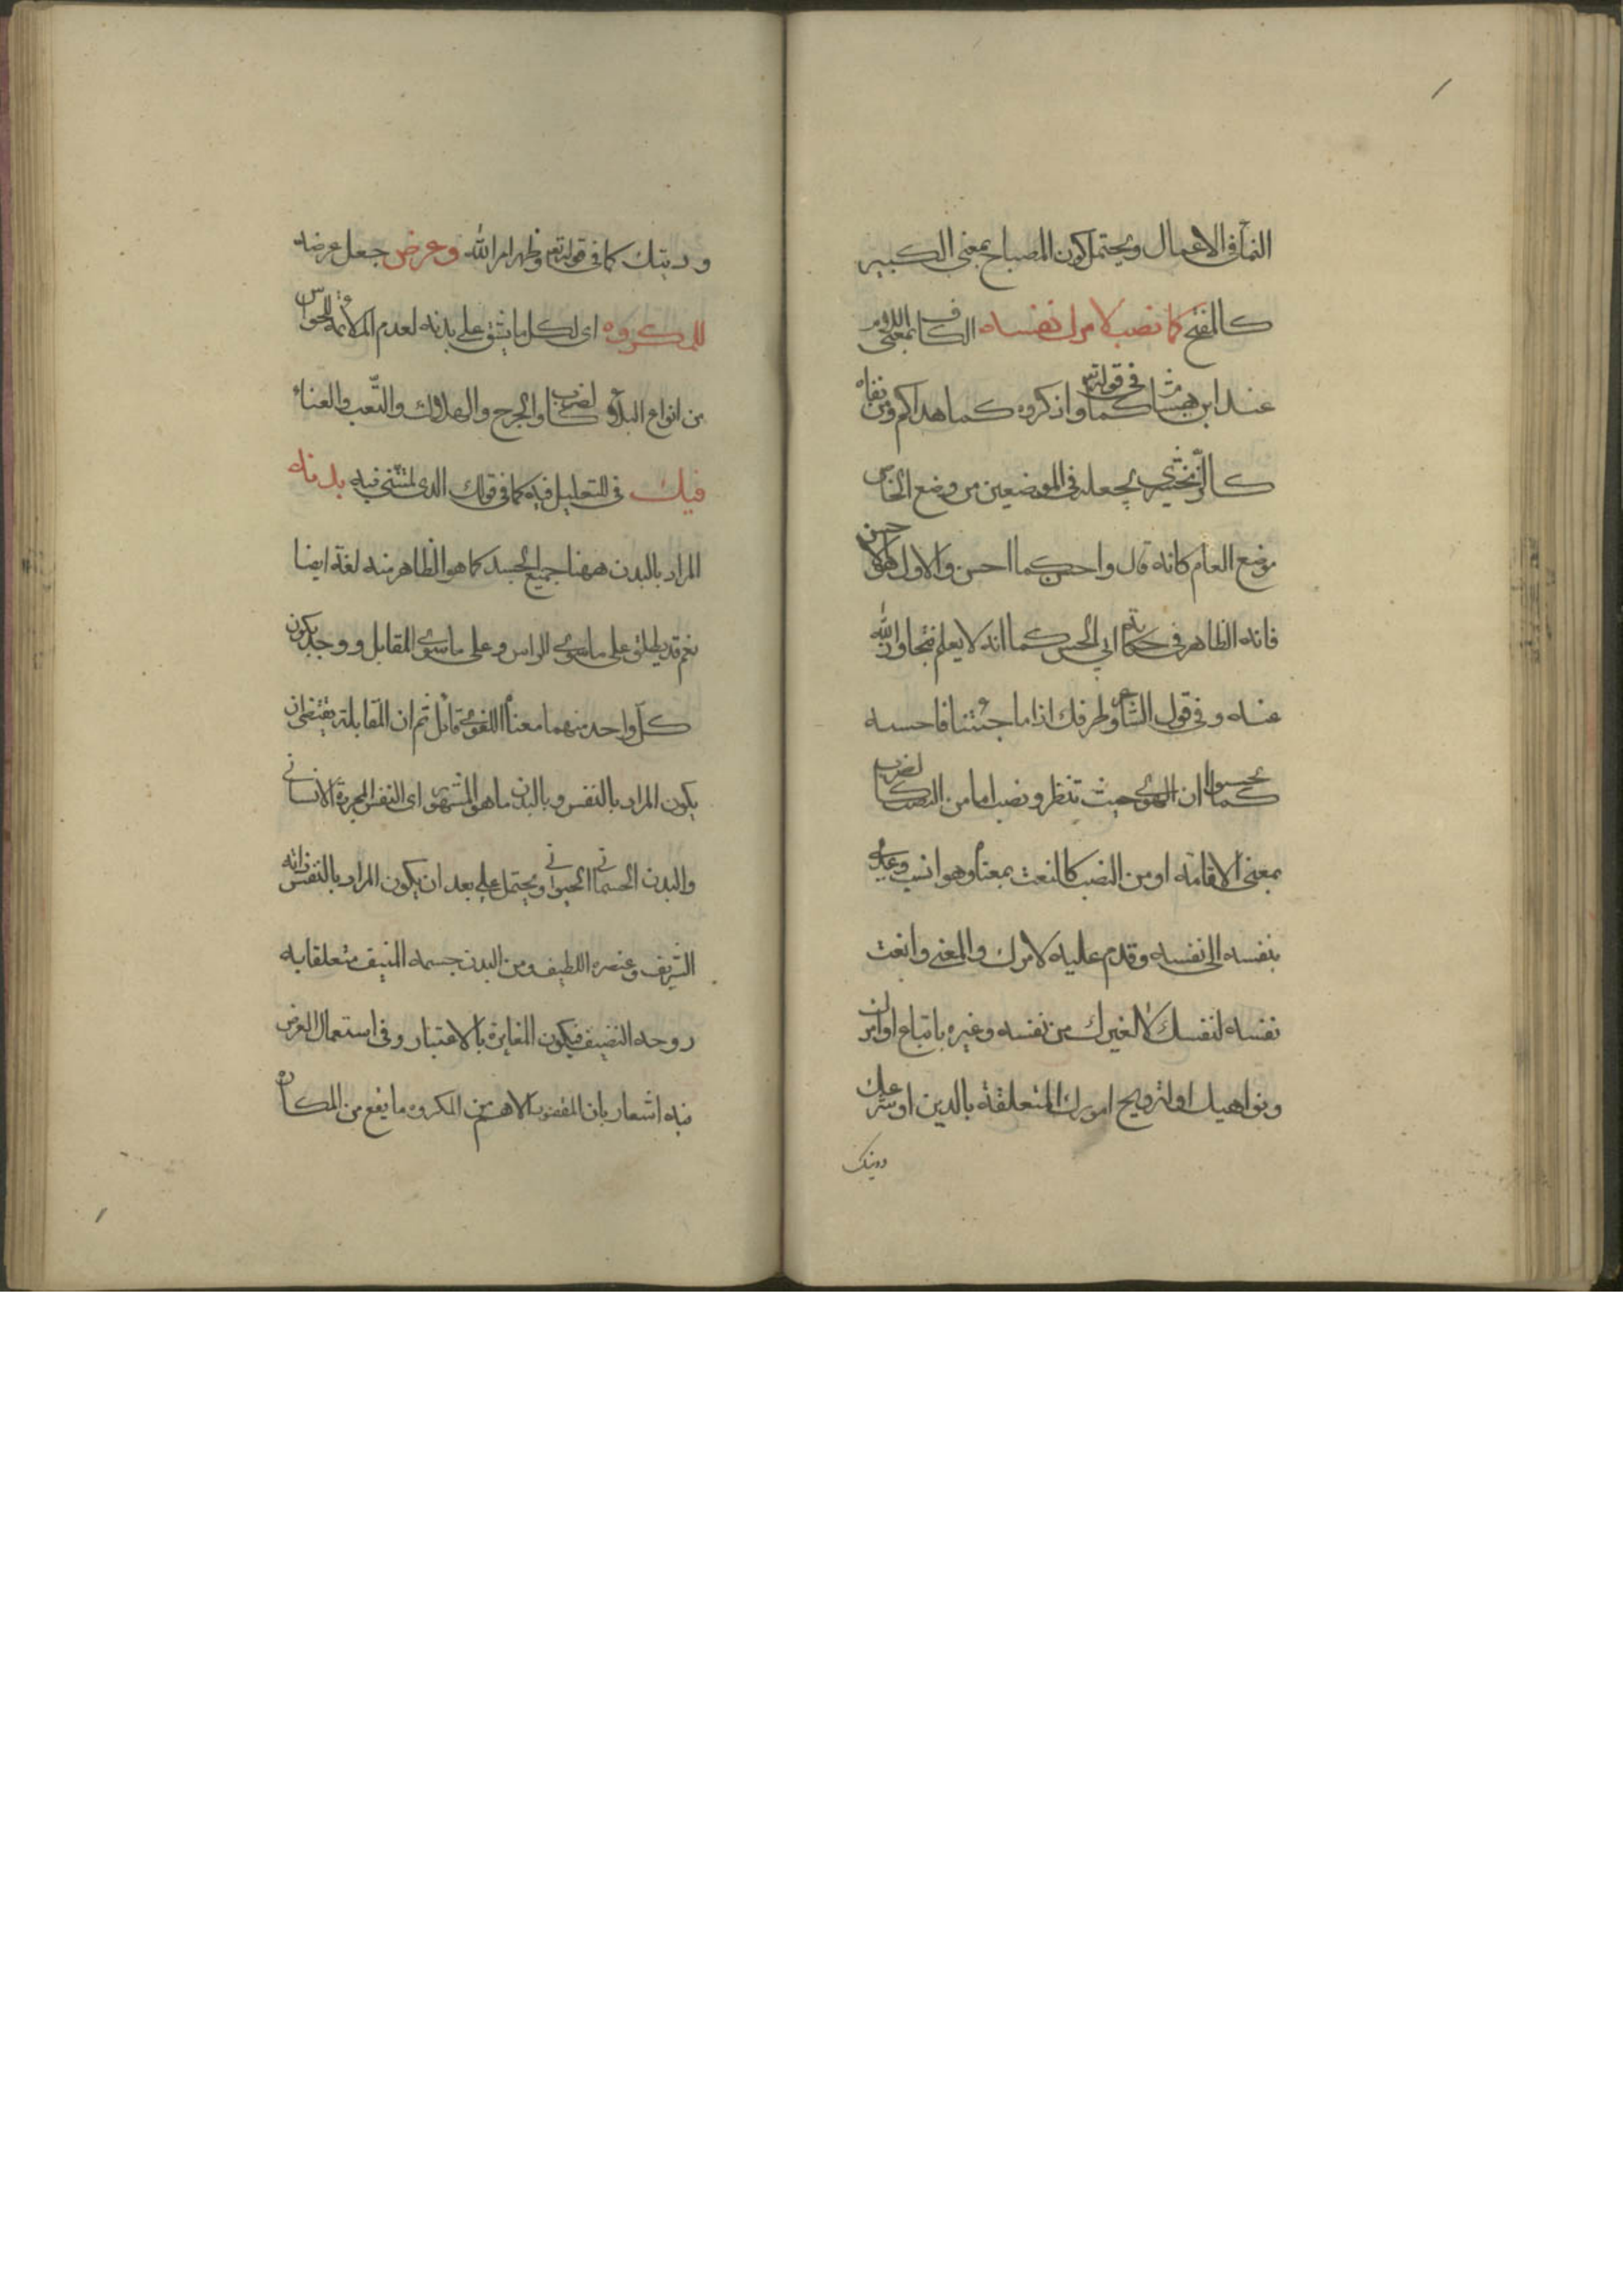 النماء في الاعمال ويحتمل كون المصباح بمعنى الكبير
كالمفتح كما نصب لامرك نفسه الكاف بمعنى اللام
عند ابن هشام كما في قوله تع واذكروه كما هداكم ومن نفاه
كالزمخشري يجعله في الموضعين من وضع الخاص
موضع العام كانه قال واحسن كما احسن والاول هو الاحسن
فانه الظاهر في حكاية ابي الحسن كما انه لا يعلم فتجاوز الله
عنه وفي قول الشاعر وطرفك اذا ما جئتنا فاحسبه
كما يحسبوا ان الهوى حيث تنظر ونصب اما من النصب كالضرب
بمعنى الاقامة او من النصب كالتعب بمعناه وهو انسب وعدي
بنفسه الى نفسه وقدم عليه لامرك والمعنى واتعب
نفسه لنفسك لا لغيرك من نفسه وغيره باتباع اوامرك
ونواهيك او لترويج امورك المتعلقة بالدين او شرعك
ودينك
ودينك كما في قوله تع وظهر امر الله وعرض جعل عرضة
للمكروه اي لكل ما يشق على بدنه لعدم الملائمة للحواس
من انواع البلاء كالضرب والجرح والهلاك والتعب والعناء
فيك في للتعليل فيه كما في قولك الذي لمتنني فيه بدنه
المراد بالبدن ههنا جميع الجسد كما هو الظاهر منه لغة ايضا
نعم قد يطلق على ما سوى الراس وعلى ما سوى المقابل ووجد يكون
كل واحد منهما معناه اللغوي تامل ثم ان المقابلة يقتضي ان
يكون المراد بالنفس وبالبدن ما هو المشهور اي النفس المجردة الانساني
والبدن الجسماني الحيواني ويحتمل على بعد ان يكون المراد بالنفس ذاته
الشريف وعنصره اللطيف ومن البدن جسمه المنيف متعلقا به
روحه النضيف فيكون المغايرة بالاعتبار وفي استعمال العرض
فيه اشعار بان المقصود الاهم من المكروه ما يقع من المكاره